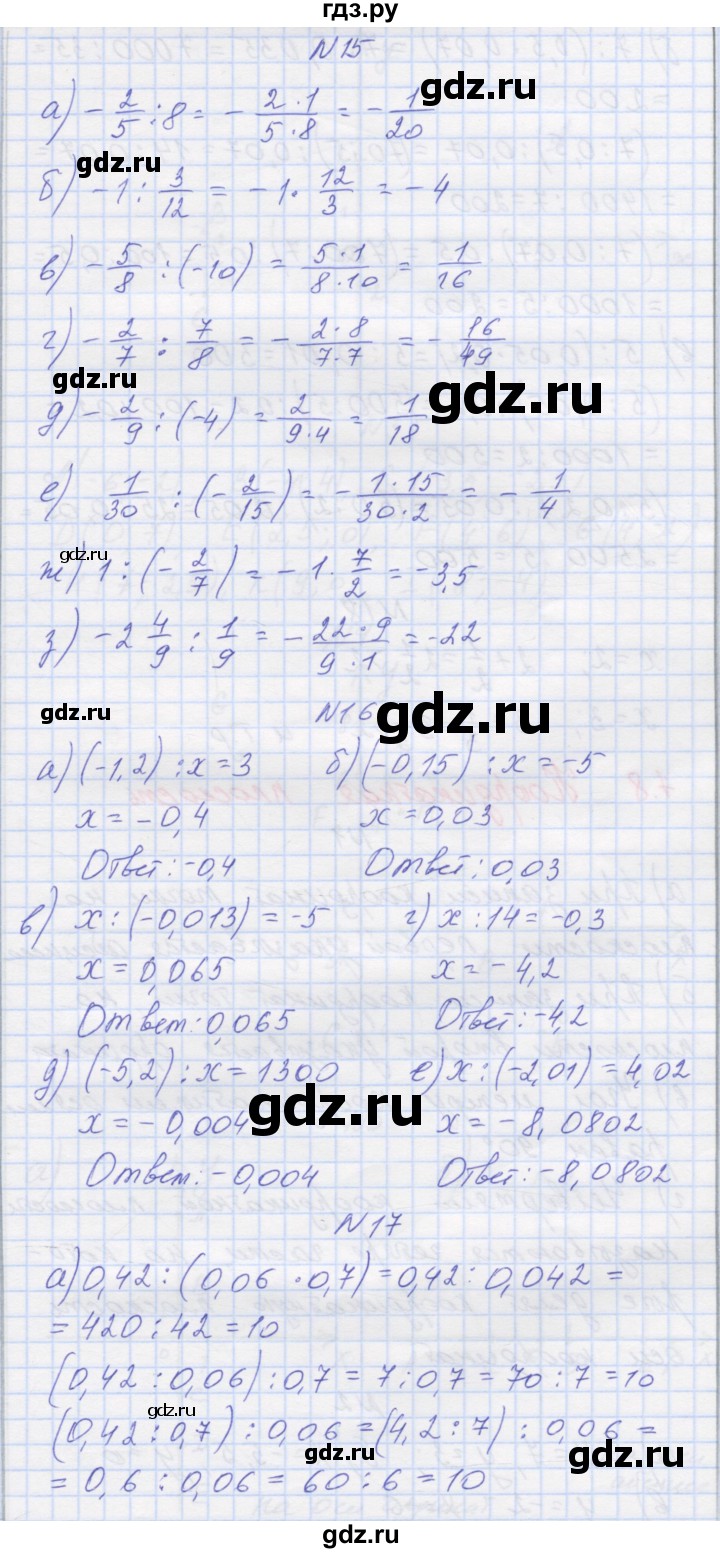 гдз.ру
N15
а) -2/5 : 8 = -(2·1)/(5·8) = -1/20
б) -1 : 3/12 = -1· 12/3 = -4
в) -5/8 : (-10) = (5·1)/(8·10) = 1/16
г) -2/7 : 7/8 = -(2·8)/(7·7) = -16/49
д) -2/9 : (-4) = 2/(9·4) = 1/18
е) 1/30 : (-2/15) = -(1·15)/(30·2) = -1/4
ж) 1 : (-2/7) = -1· 7/2 = -3,5
з) -2 4/9 : 1/9 = -(22·9)/(9·1) = -22
N16
а) (-1,2) : x = 3 б) (-0,15) : x = -5
x = -0,4 x = 0,03
Ответ: -0,4 Ответ: 0,03
в) x : (-0,013) = -5 г) x : 14 = -0,3
x = 0,065 x = -4,2
Ответ: 0,065 Ответ: -4,2
д) (-5,2) : x = 1300 е) x : (-2,01) = 4,02
x = -0,004 x = -8,0802
Ответ: -0,004 Ответ: -8,0802
N17
а) 0,42 : (0,06 · 0,7) = 0,42 : 0,042 =
= 420 : 42 = 10
(0,42 : 0,06) : 0,7 = 7 : 0,7 = 70 : 7 = 10
(0,42 : 0,7) : 0,06 = (4,2 : 7) : 0,06 =
= 0,6 : 0,06 = 60 : 6 = 10
gdz.ru
gdz.ru
gdz.ru
gdz.ru
gdz.ru
gdz.ru
gdz.ru
gdz.ru
gdz.ru
gdz.ru
gdz.ru
gdz.ru
gdz.ru